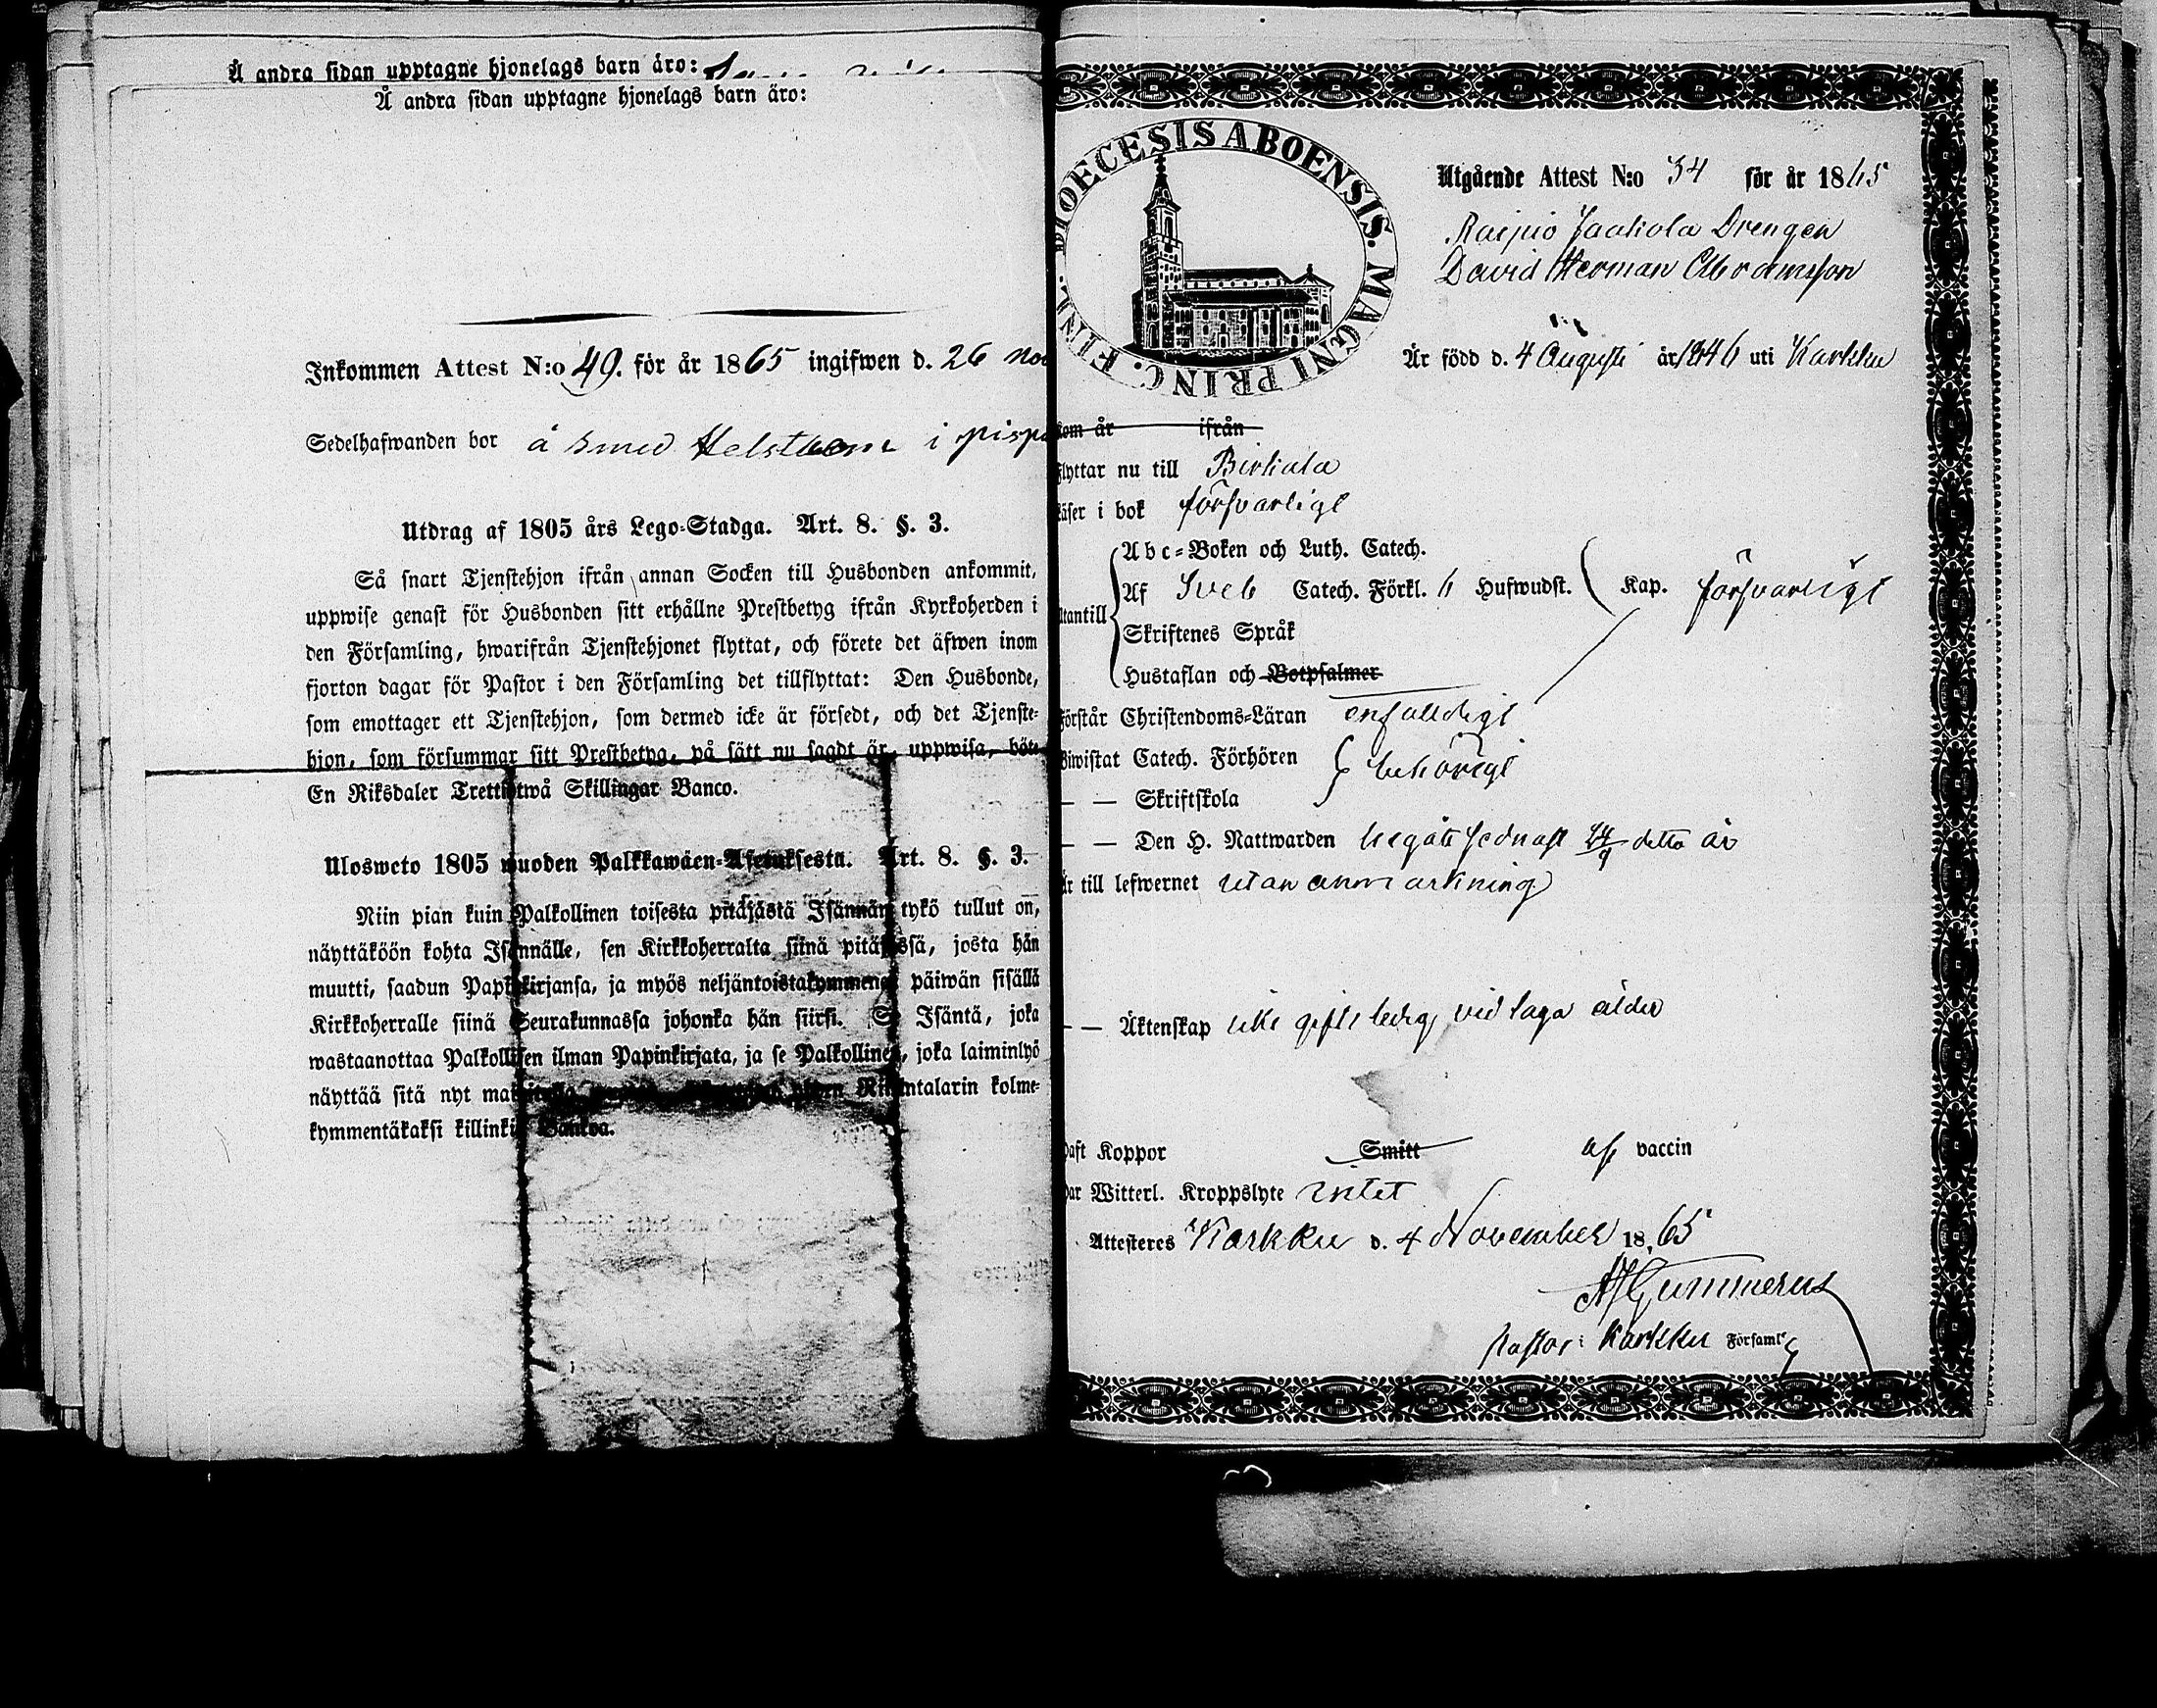 Å andra sidan upptagne hjonelags barn äro:
Å andra sidan upptagne hjonelags barn äro:
Inkommen Attest N:o 49. för år 1865 ingifwen d. 26 Nov
Sedelhafwanden bor å smed i pispa
Utdrag af 1805 års Lego-Stadga. Art. 8. §. 3.
Så snart Tjenstehjon ifrån annan Socken till Husbonden ankommit,
uppwise genast för Husbonden sitt erhållne Prestbetyg ifrån Kyrkoherden i
den Församling, hwarifrån Tjenstehjonet flyttat, och förete det äfwen inom
fjorton dagar för Pastor i den Församling det tillflyttat: Den Husbonde,
som emottager ett Tjenstehjon, som dermed icke är försedt, och det Tjenste-
hjon, som försummar sitt Prestbetyg, på sätt nu sagdt är, uppwisa, böte
En Riksdaler Trettiotwå Skillingar Banco.
Ulosweto 1805 wuoden Palkkawäen-Asetuksesta. Art. 8. §. 3.
Niin pian kuin Palkollinen toisesta pitäjästä Isännän tykö tullut on,
näyttäköön kohta Isännälle, sen Kirkkoherralta siinä pitäjässä, josta hän
muutti, saadun Papinkirjansa, ja myös neljäntoistakymmenen päiwän sisällä
Kirkkoherralle siinä Seurakunnassa johonka hän siirsi. Se Isäntä, joka
wastaanottaa Palkollisen ilman Papinkirjata, ja se Palkollinen, joka laiminlyö
näyttää sitä nyt Riksintalarin kolme-
kymmentäkaksi killinkiä Bankoa.
DIOECESIS ABOENSIS. MAGNI PRINC. FINL.
Utgående Attest N:o 34 för år 1865
Raipio Jaakola Drengen
David Herman Abramsson
Är född d. 4 Augusti år 1846 uti Karkku
kom år ifrån
Flyttar nu till Birkala
Läser i bok försvarligt
Abc-Boken och Luth. Catech.
Utantill Af Sveb Catech. Förkl. 6 Hufwudst. Kap. försvarligt
Skriftenes Språk
Hustaflan och Botpsalmer
Förstår Christendoms-Läran enfaldigt
Biwistat Catech. Förhören behörigt
— — Skriftskola
— — Den H. Nattwarden begått sednast 24/9 detta år
Är till lefwernet utan anmärkning
— — Äktenskap icke gift ledig, vid laga ålder
Haft Koppor Smitt af vaccin
Har Witterl. Kroppslyte intet
Attesteres Karkku d. 4 November 1865
Gummerus
Pastor i Karkku Församl